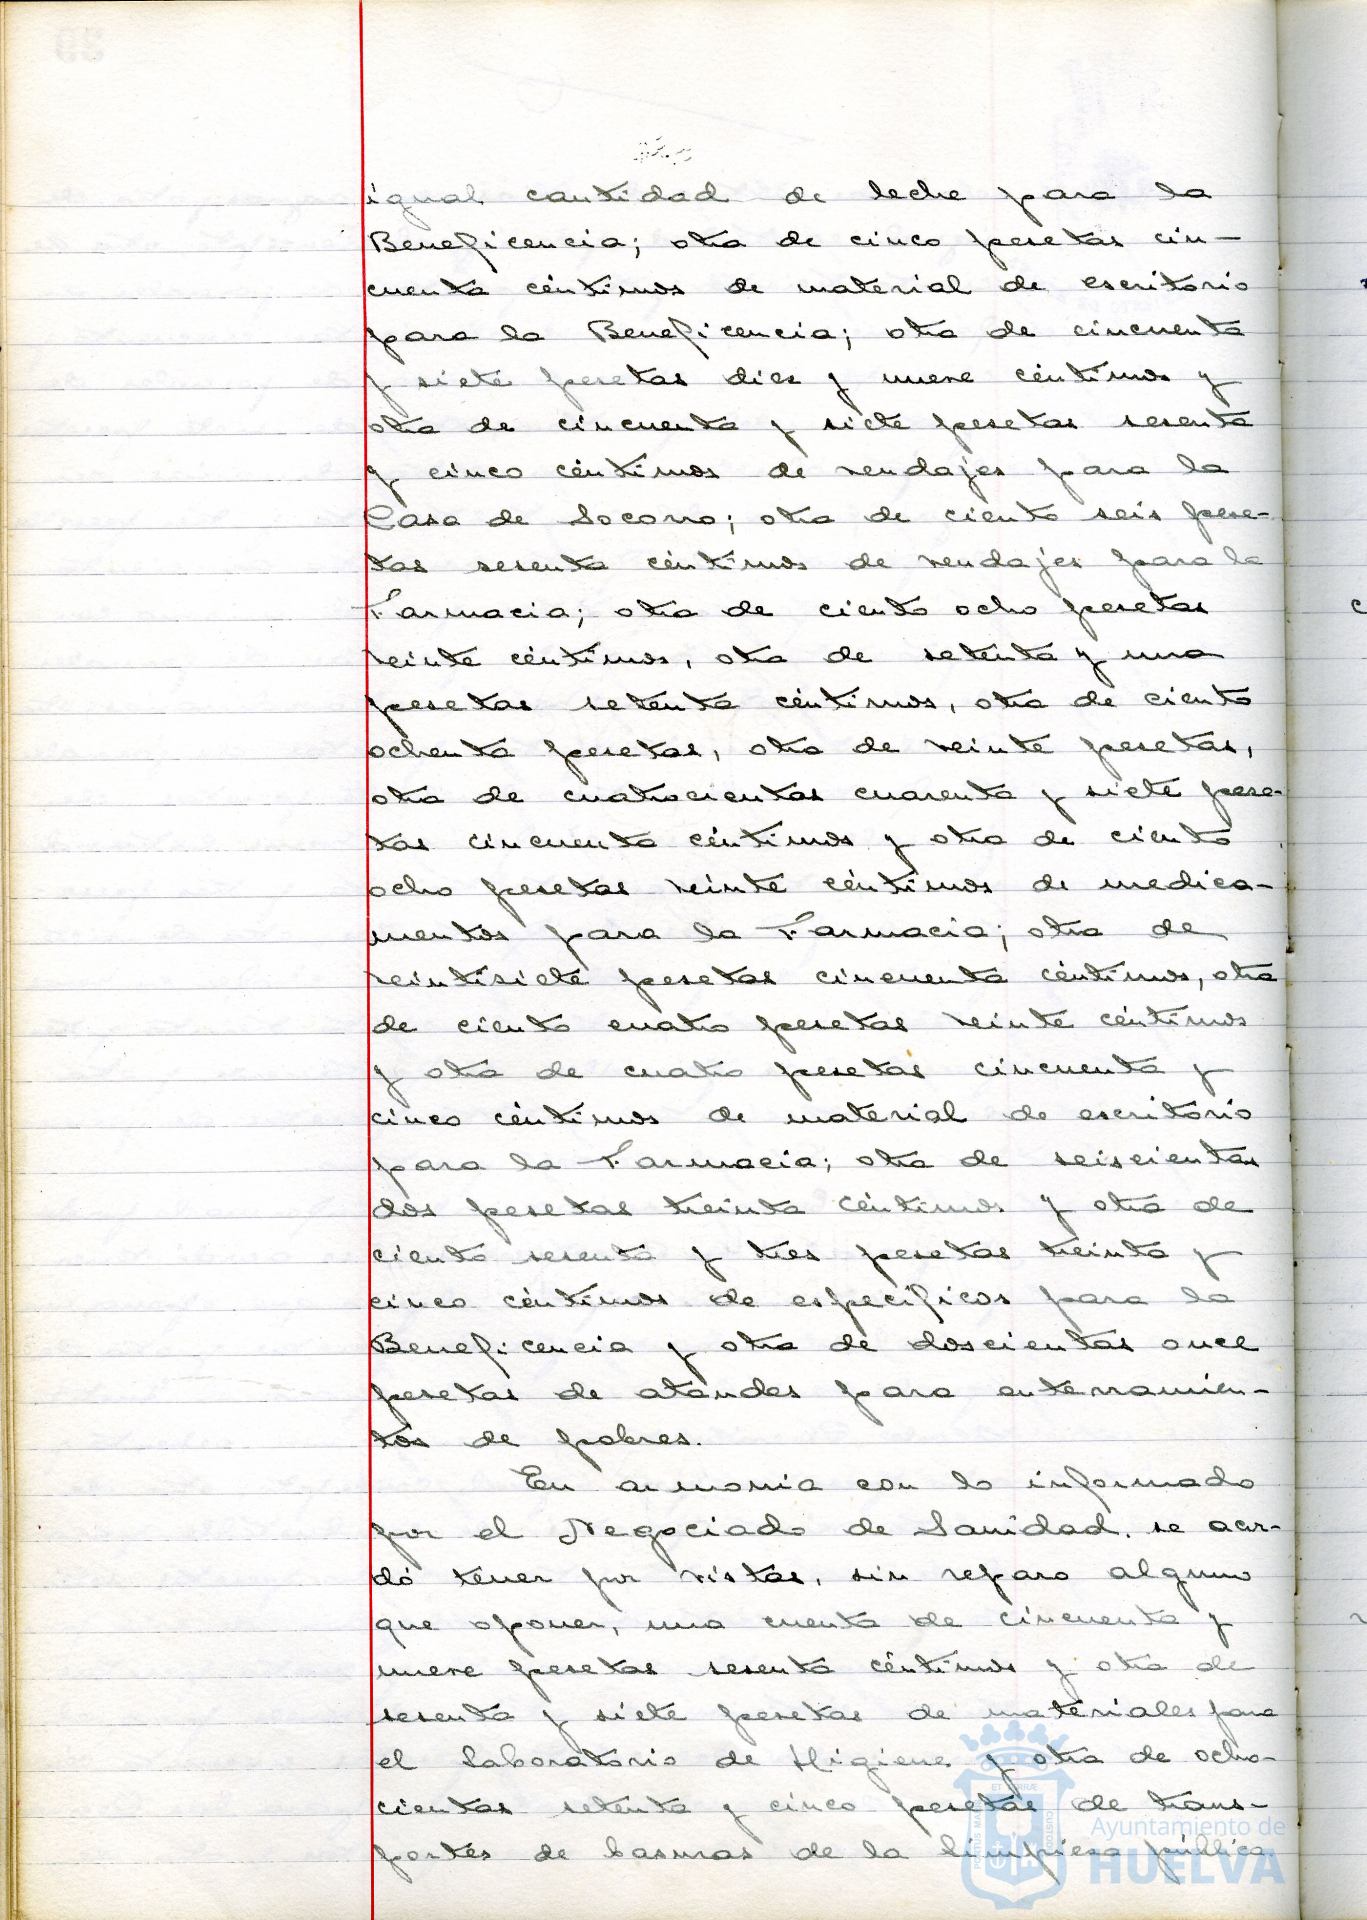 igual cantidad de leche para la
Beneficencia; otra de cinco pesetas cin-
cuenta céntimos de material de escritorio
para la Beneficencia; otra de cincuenta
y siete pesetas diez y nueve céntimos y
otra de cincuenta y siete pesetas sesenta
y cinco céntimos de vendajes para la
Casa de Socorro; otra de ciento seis pese-
tas sesenta céntimos de vendajes para la
Farmacia; otra de ciento ocho pesetas
veinte céntimos, otra de setenta y una
pesetas setenta céntimos, otra de ciento
ochenta pesetas, otra de veinte pesetas,
otra de cuatrocientas cuarenta y siete pese-
tas cincuenta céntimos y otra de ciento
ocho pesetas veinte céntimos de medica-
mentos para la Farmacia; otra de
veintisiete pesetas cincuenta céntimos, otra
de ciento cuatro pesetas veinte céntimos
y otra de cuatro pesetas cincuenta y
cinco céntimos de material de escritorio
para la Farmacia; otra de seiscientas
dos pesetas treinta céntimos y otra de
ciento sesenta y tres pesetas treinta y
cinco céntimos de específicos para la
Beneficencia y otra de doscientas once
pesetas de ataudes para enterramien-
tos de pobres.
En armonia con lo informado
por el Negociado de Sanidad, se acor-
dó tener por vistas, sin reparo alguno
que oponer, una cuenta de cincuenta y
nueve pesetas sesenta céntimos y otra de
sesenta y siete pesetas de materiales para
el Laboratorio de Higiene y otra de ocho-
cientas setenta y cinco pesetas de trans-
portes de basuras de la limpieza pública.
Ayuntamiento de
HUELVA